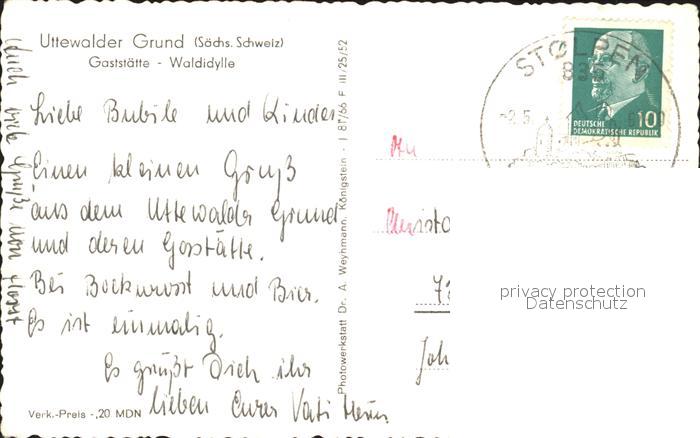 Uttewalder Grund (Sächs. Schweiz)
Gaststätte - Waldidylle
Liebe Bubile und Kinder
Einen kleinen Gruß
aus dem Uttewalder Grund
und deren Gaststätte.
Bei Bockwurst und Bier.
Es ist einmalig.
Es grüßt Dich ihr
lieben Eurer Vati
Verk.-Preis -,20 MDN
auch viele Grüße von Horst
Photowerkstatt Dr. A. Weyhmann, Königstein - J 87/66 F III/25/52
STOLPEN
-2.5.
DEUTSCHE
DEMOKRATISCHE REPUBLIK
10
An
Christo
72
Joh
privacy protection
Datenschutz